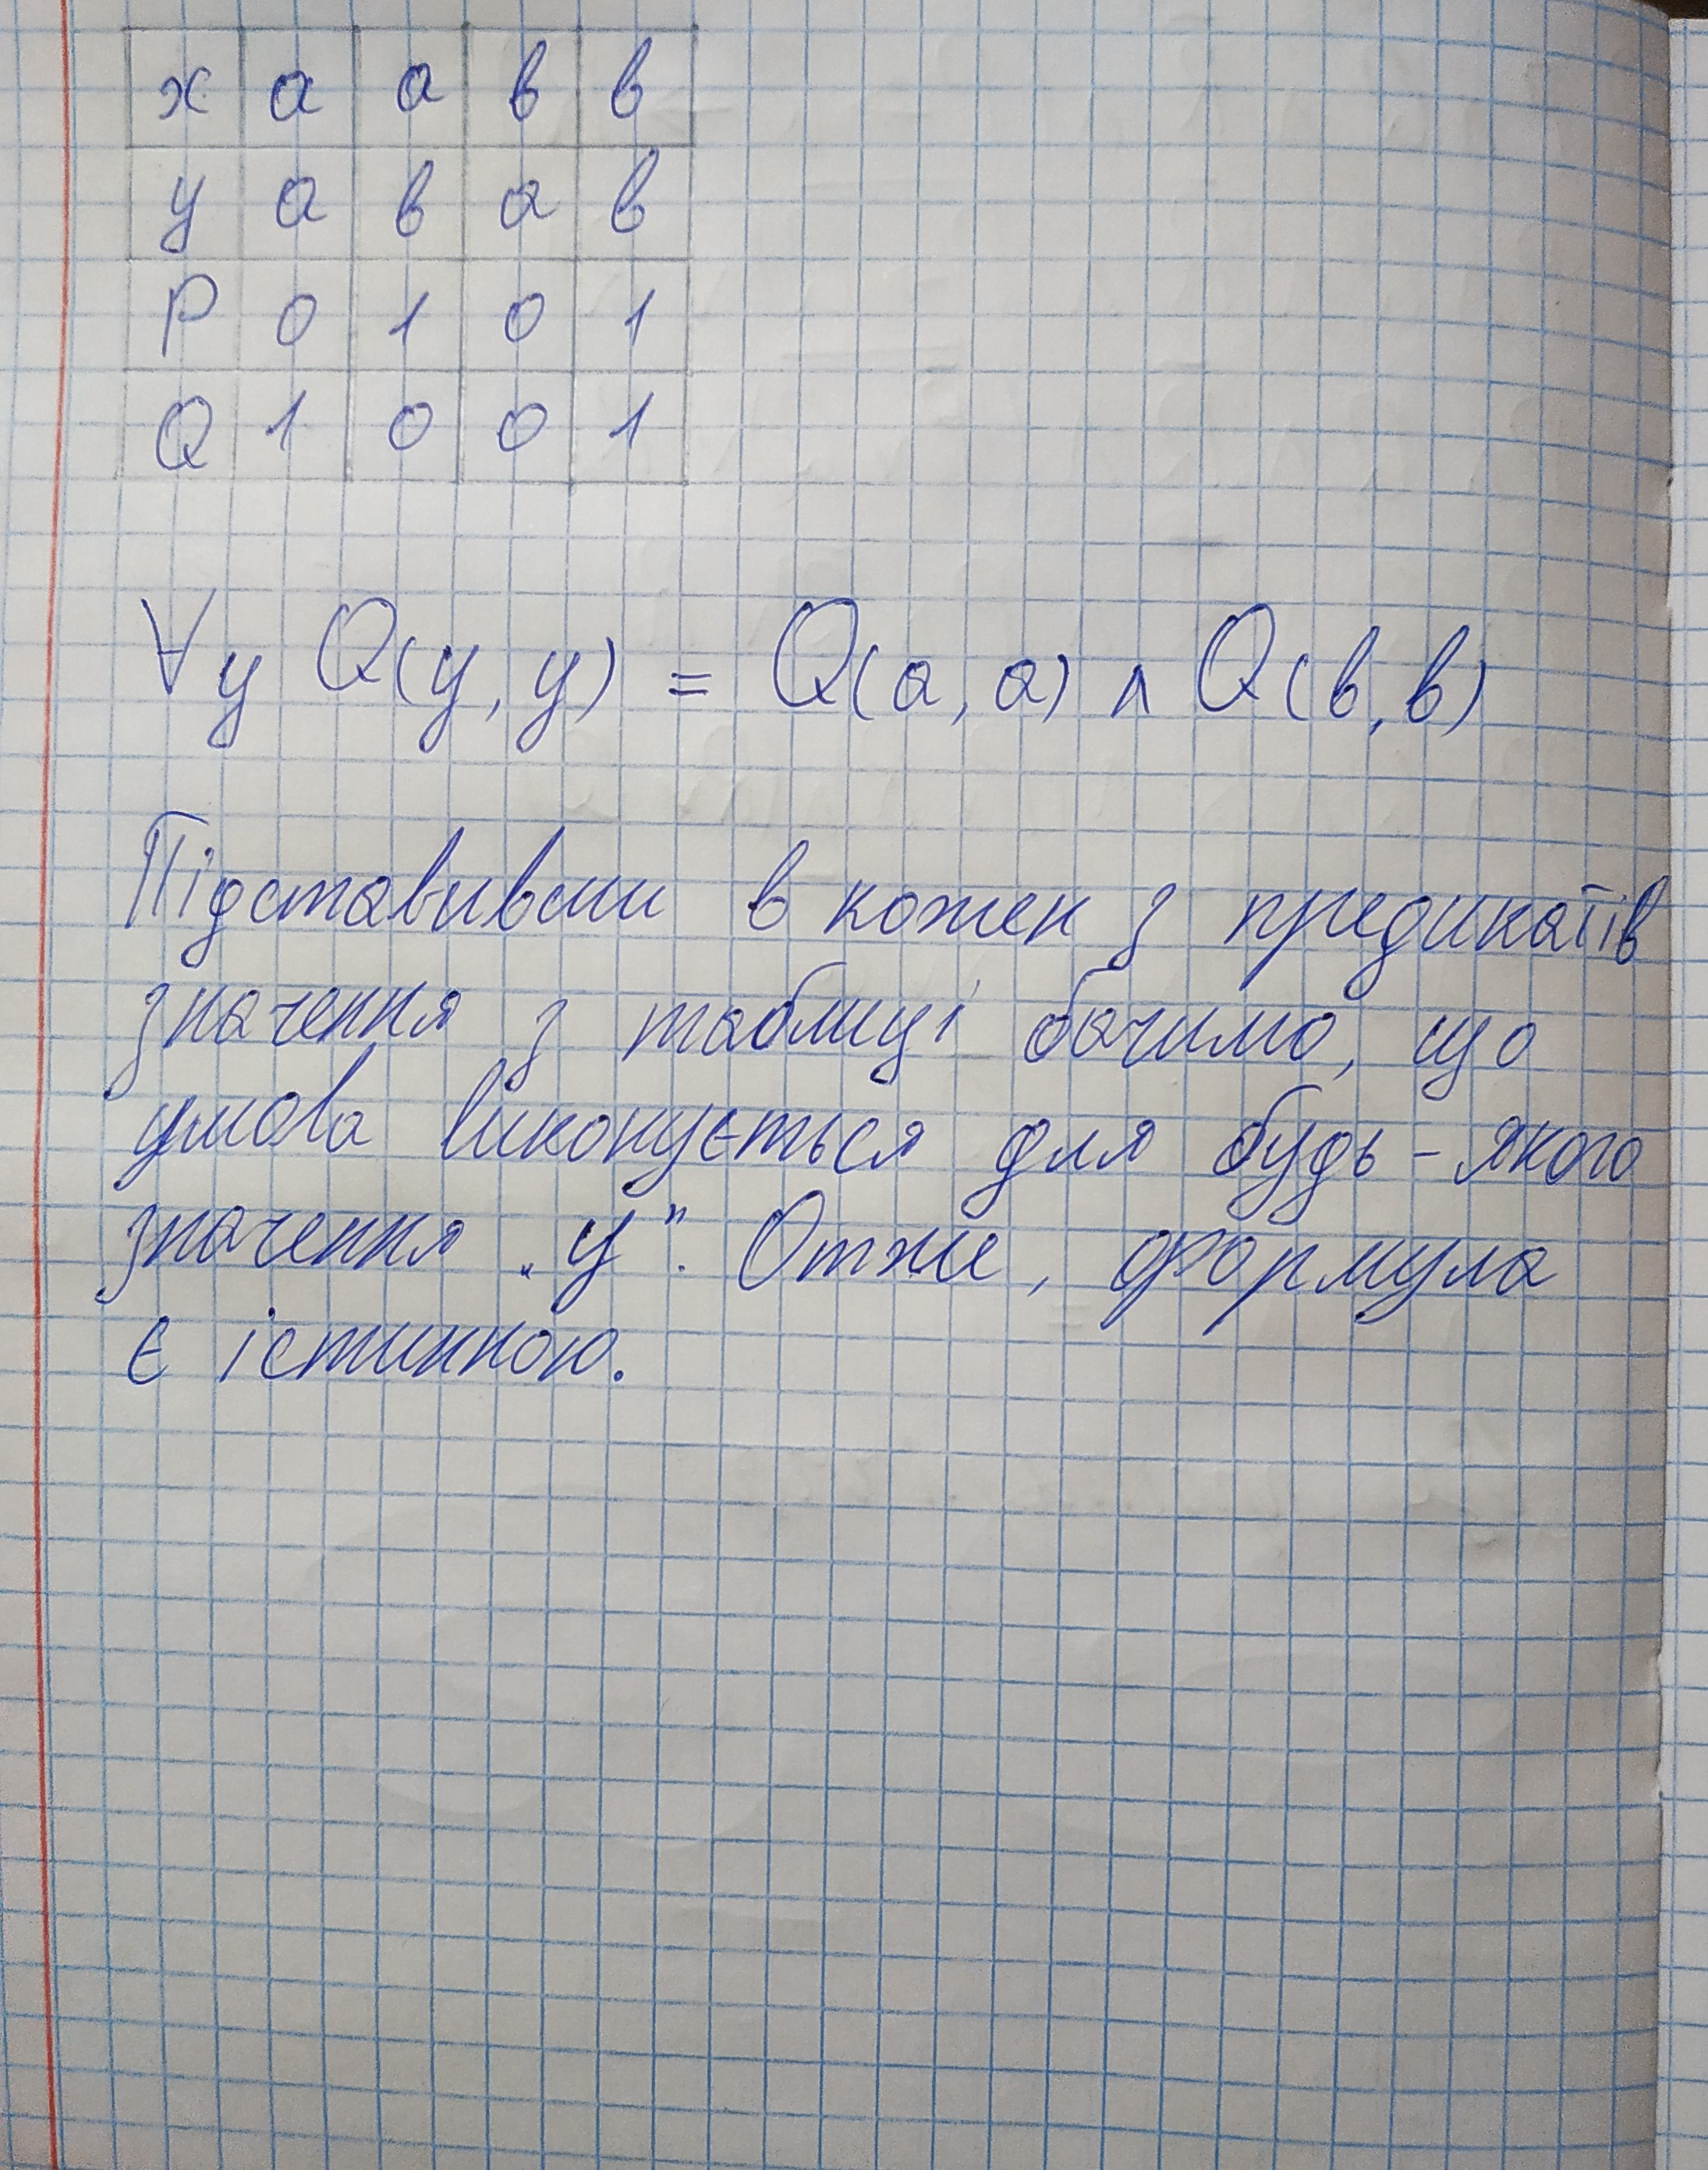 х а а в в
у а в а в
P 0 1 0 1
Q 1 0 0 1
∀y Q(y, y) = Q(a, a) ∧ Q(в, в)
Підставивши в кожен з предикатів
значення з таблиці бачимо, що
умова виконується для будь-якого
значення „у". Отже, формула
є істинною.